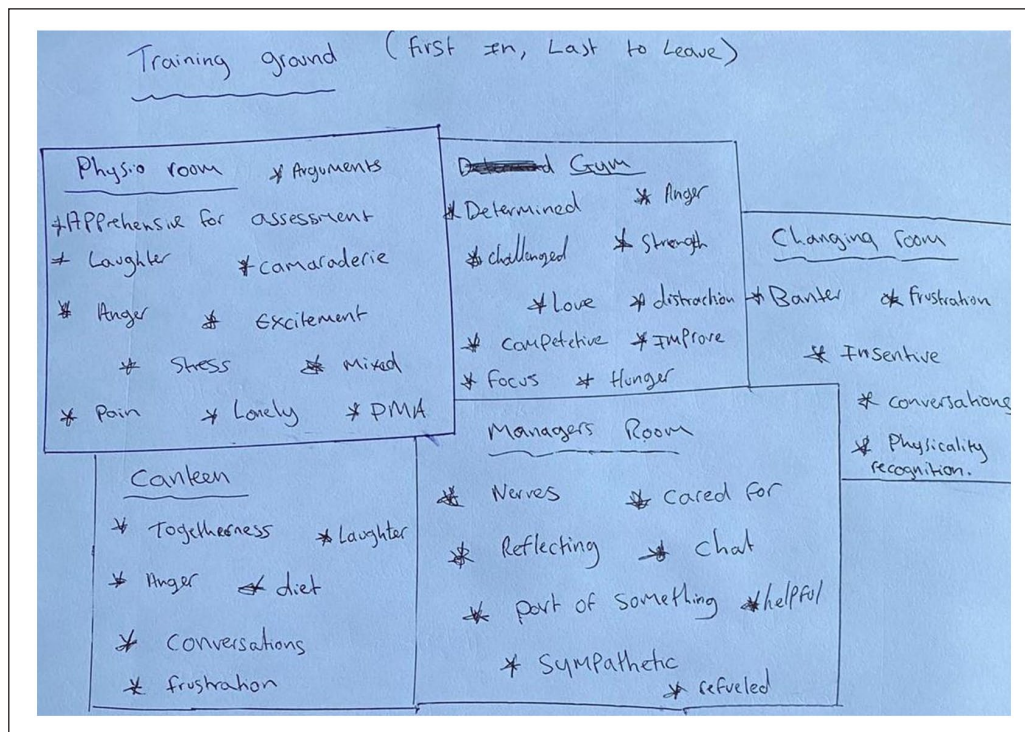 Training ground (first In, Last to Leave)
Physio room * Arguments
* APPrehensive for assessment
* Laughter * camaraderie
* Anger * Excitement
* Stress * Mixed
* Pain * Lonely * PMA
Gym
* Determined * Anger
* challenged * Strength
* Love * distraction
* competetive * Improve
* Focus * Hunger
Changing room
* Banter * frustration
* Insentive
* conversations
* Physicality
recognition.
Canteen
* Togetherness * Laughter
* Anger * diet
* Conversations
* frustration
Managers Room
* Nerves * Cared for
* Reflecting * Chat
* part of something * helpful
* Sympathetic
* refueled